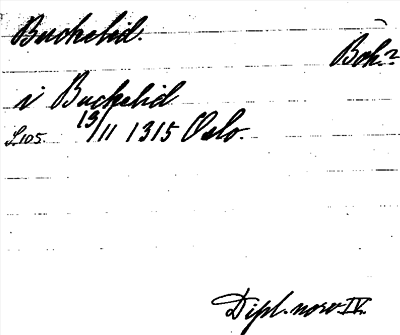 Buckelid.
Boh.?
i Buckelid
S. 105. 19/11 1315 Oslo.
Dipl. norv. IV.